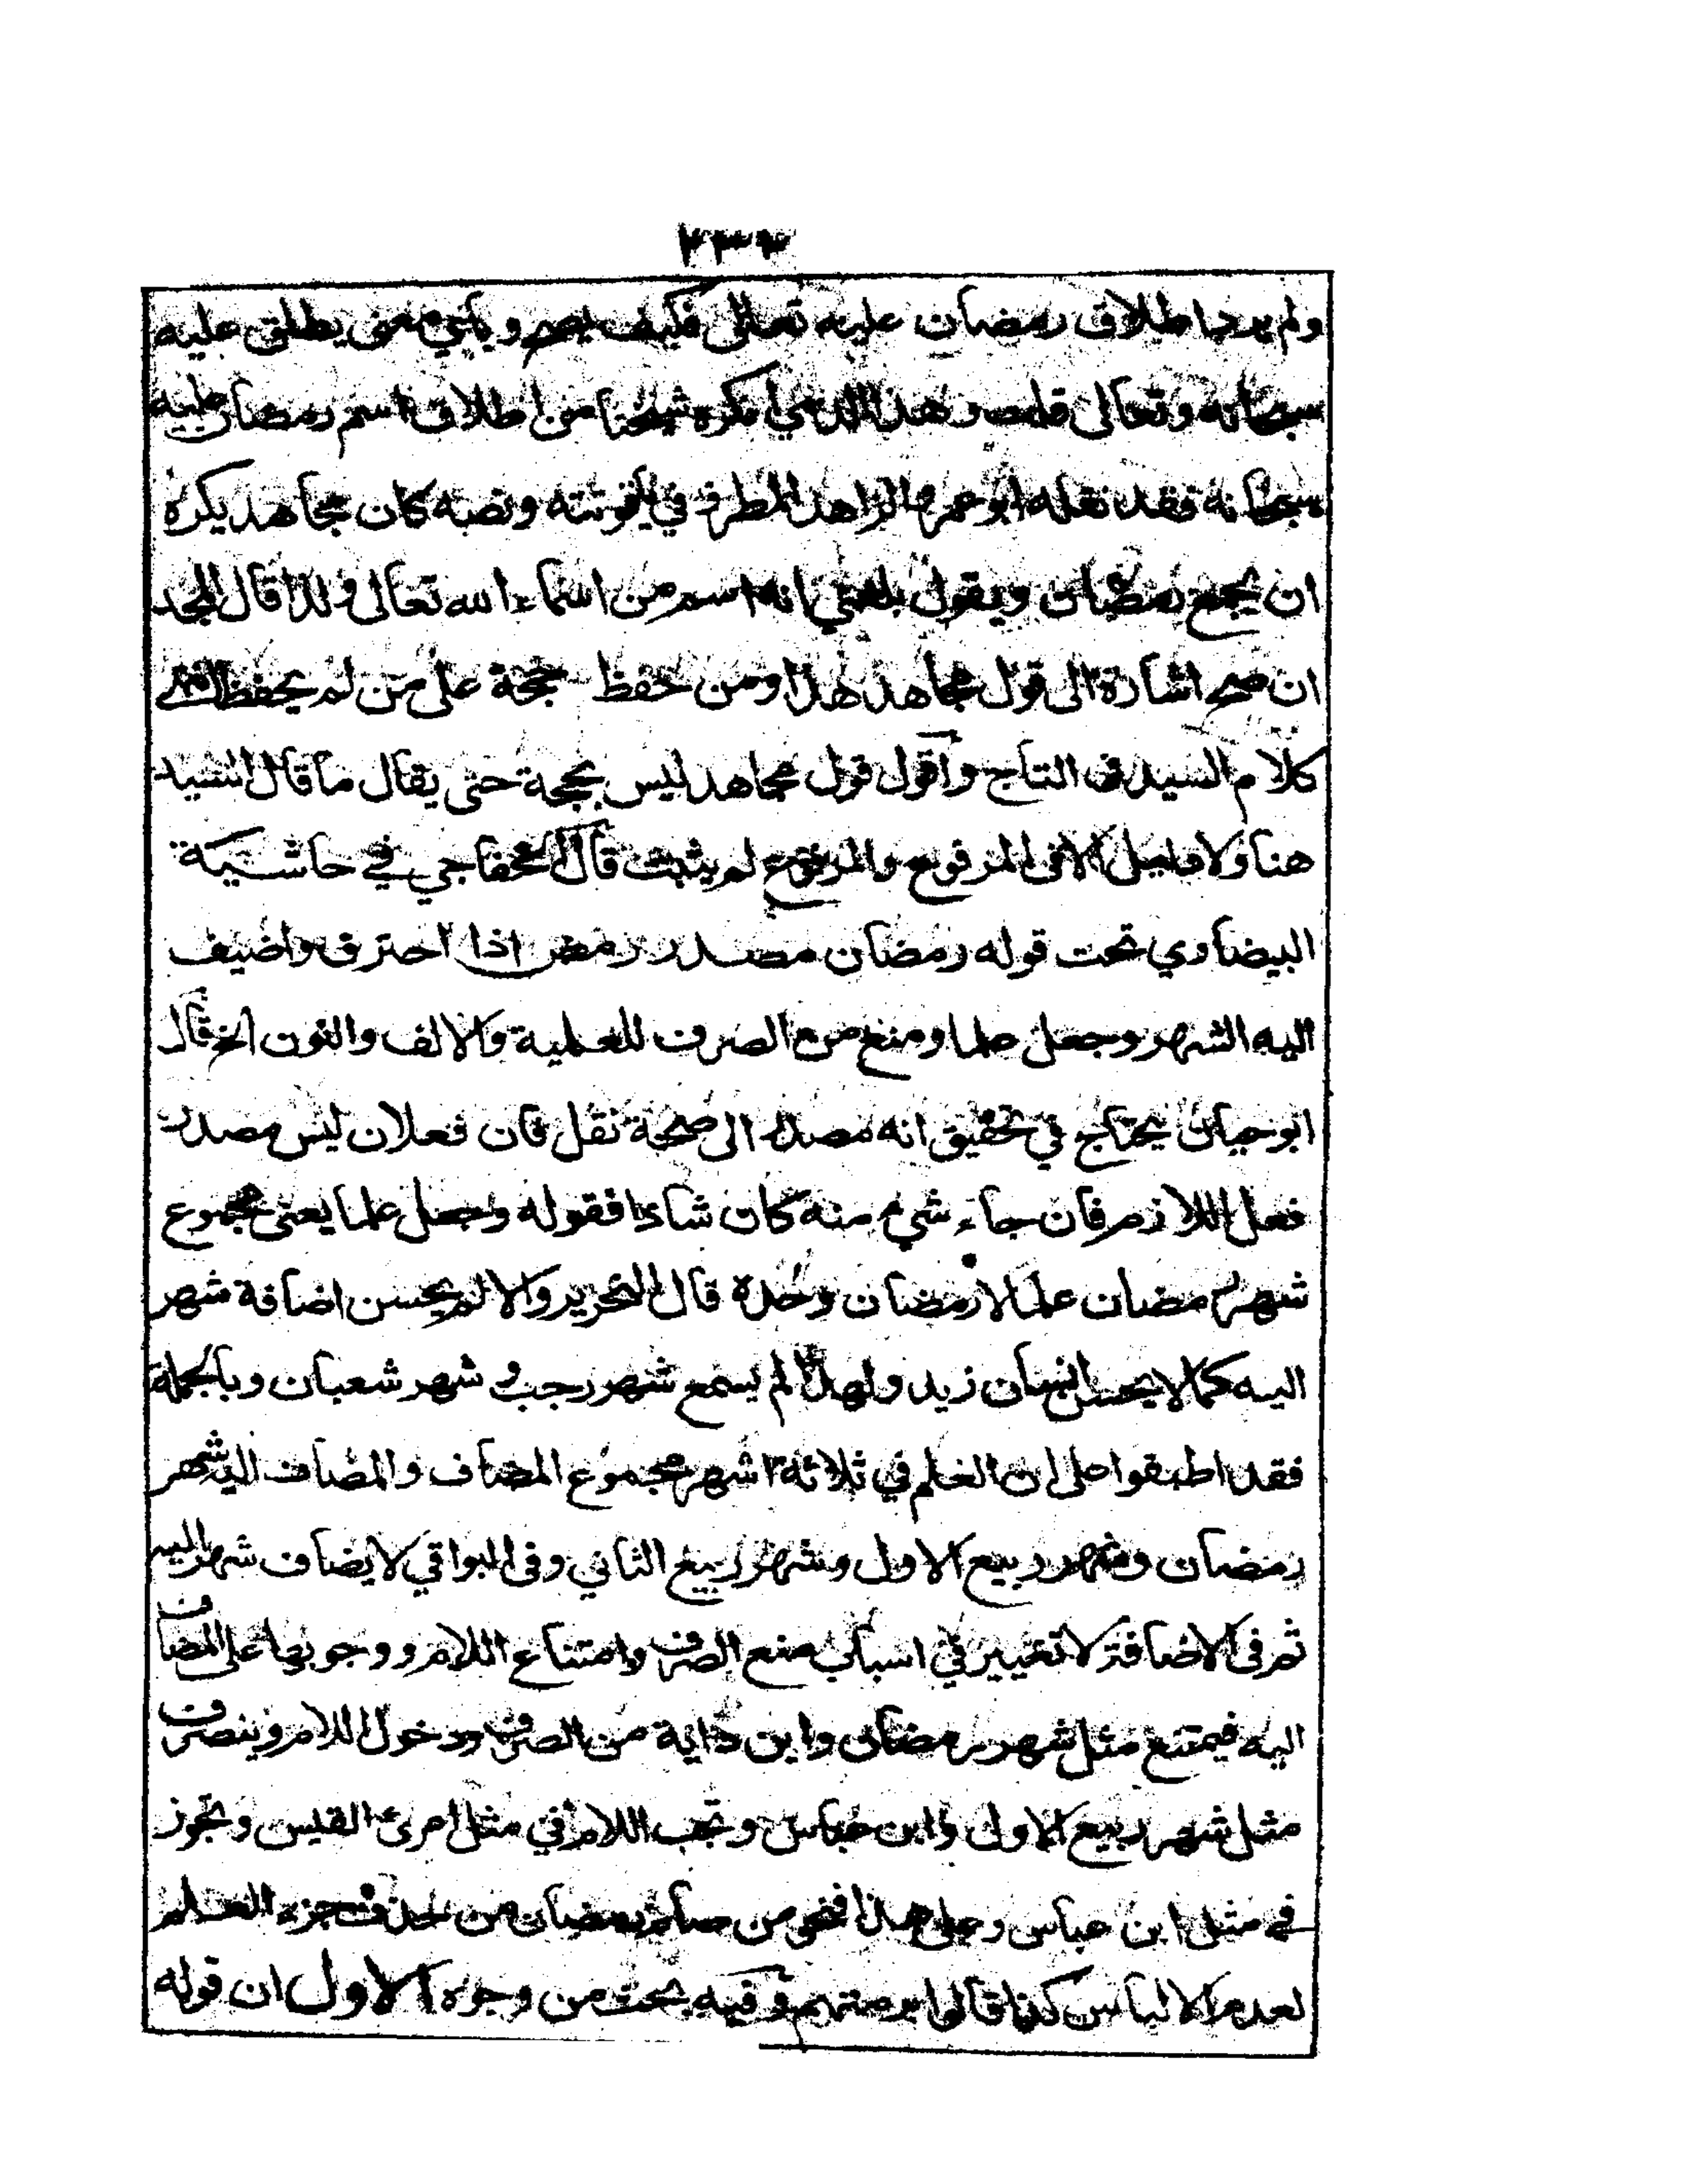 ٢٣٢
ولم يرد اطلاق رمضان عليه تعالى فكيف يصح وباي معنى يطلق عليه
سبحانه وتعالى قلت وهذا الذي انكره شيخنا من اطلاق اسم رمضان عليه
سبحانه فقد نقله ابو عمر الزاهد المطرز في ياقوتته ونصه كان مجاهد يكره
ان يجمع رمضان ويقول بلغني انه اسم من اسماء الله تعالى ولذا قال المجد
ان صح اشارة الى قول مجاهد هذا ومن حفظ حجة على من لم يحفظ انتهى
كلام السيد في التاج واقول قول مجاهد ليس بحجة حتى يقال ما قال السيد
هنا ولا دليل الا في المرفوع والمرفوع لم يثبت قال الخفاجي في حاشية
البيضاوي تحت قوله رمضان مصدر رمض اذا احترق واضيف
اليه الشهر وجعل علما ومنع من الصرف للعلمية والالف والنون الخ قال
ابو حيان يحتاج في تحقيق انه مصدر الى صحة نقل فان فعلان ليس مصدر
فعل اللازم فان جاء شيء منه كان شاذا فقوله وجعل علما يعني مجموع
شهر رمضان علما لا رمضان وحده قال النحرير والا لم يحسن اضافة شهر
اليه كما لا يحسن انسان زيد ولهذا لم يسمع شهر رجب و شهر شعبان وبالجملة
فقد اطبقوا على ان العلم في ثلاثة اشهر مجموع المضاف والمضاف اليه شهر
رمضان وشهر ربيع الاول وشهر ربيع الثاني وفي البواقي لا يضاف شهر اليه
ثم في الاضافة لا تغيير في اسباب منع الصرف وامتناع اللام ووجوبها على المضاف
اليه فيمتنع مثل شهر رمضان وابن داية من الصرف ودخول اللام وينصرف
مثل شهر ربيع الاول وابن عباس وتجب اللام في مثل امرئ القيس وتجوز
في مثل ابن عباس وعلى هذا فنحو من صام رمضان من حذف جزء العلم
لعدم الالباس كذا قالوا برمتهم وفيه بحث من وجوه الاول ان قوله